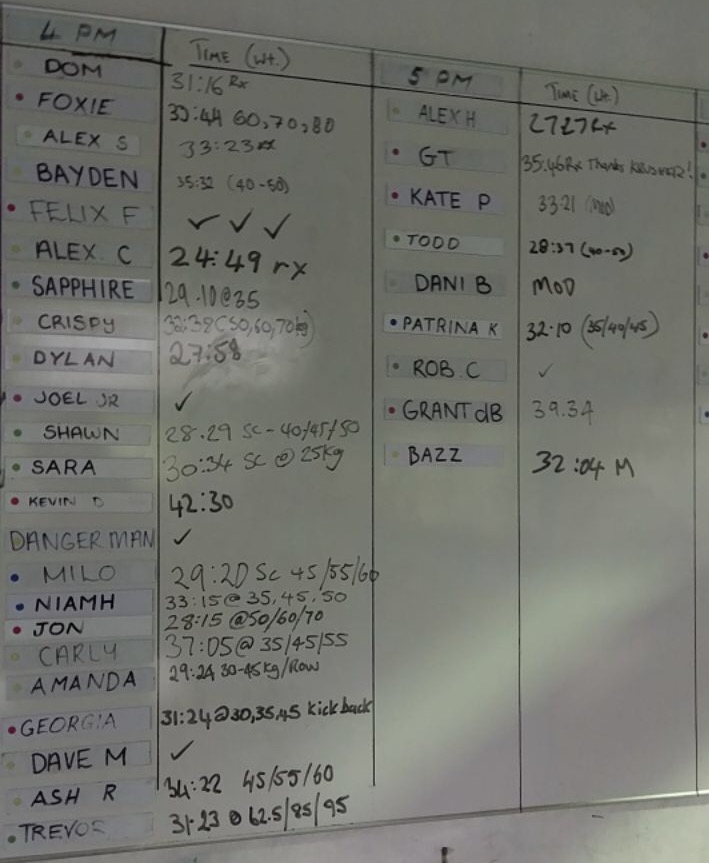 4 PM TIME (Wt.)
DOM 31:16 Rx
FOXIE 33:44 60,70,80
ALEX S 33:23 rx
BAYDEN 35:32 (40-50)
FELIX F ✓ ✓ ✓
ALEX C 24:49 rx
SAPPHIRE 29.10@35
CRISPY 32:38 (50,60,70kg)
DYLAN 27:58
JOEL JR ✓
SHAWN 28.29 SC - 40/45/50
SARA 30:34 SC @ 25kg
KEVIN D 42:30
DANGERMAN ✓
MILO 29:20 SC 45/55/60
NIAMH 33:15@35,45,50
JON 28:15 @50/60/70
CARLY 37:05@35/45/55
AMANDA 29:24 30-45kg/Row
GEORGIA 31:24@30,35,45 kickback
DAVE M ✓
ASH R 34:22 45/55/60
TREVOR 31.23 @ 62.5/85/95
5 PM TIME (Wt.)
ALEX H 2727 Rx
GT 35.46Rx Thanks
KATE P 33:21 (MOD)
TODD 28:37 (40-50)
DANI B MOD
PATRINA K 32.10 (35/40/45)
ROB C ✓
GRANT dB 39.34
BAZZ 32:04 M